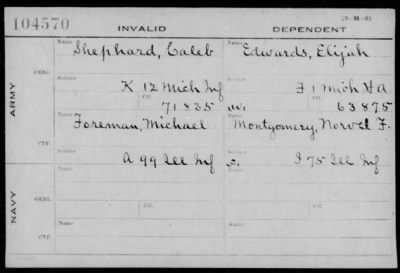 104570
INVALID DEPENDENT
(3-H-3)
Name Shephard, Caleb Name Edwards, Elijah
ARMY
ORIG. Service K 12 Mich Inf Service I 1 Mich H A
Ctf. 71835 Ctf. 63875
Name Foreman, Michael Name Montgomery, Norvel F.
CTF. Service A 99 Ill Inf Service I 75 Ill Inf
NAVY
ORIG. Name Name
Ctf. Ctf.
CTF. Name Name